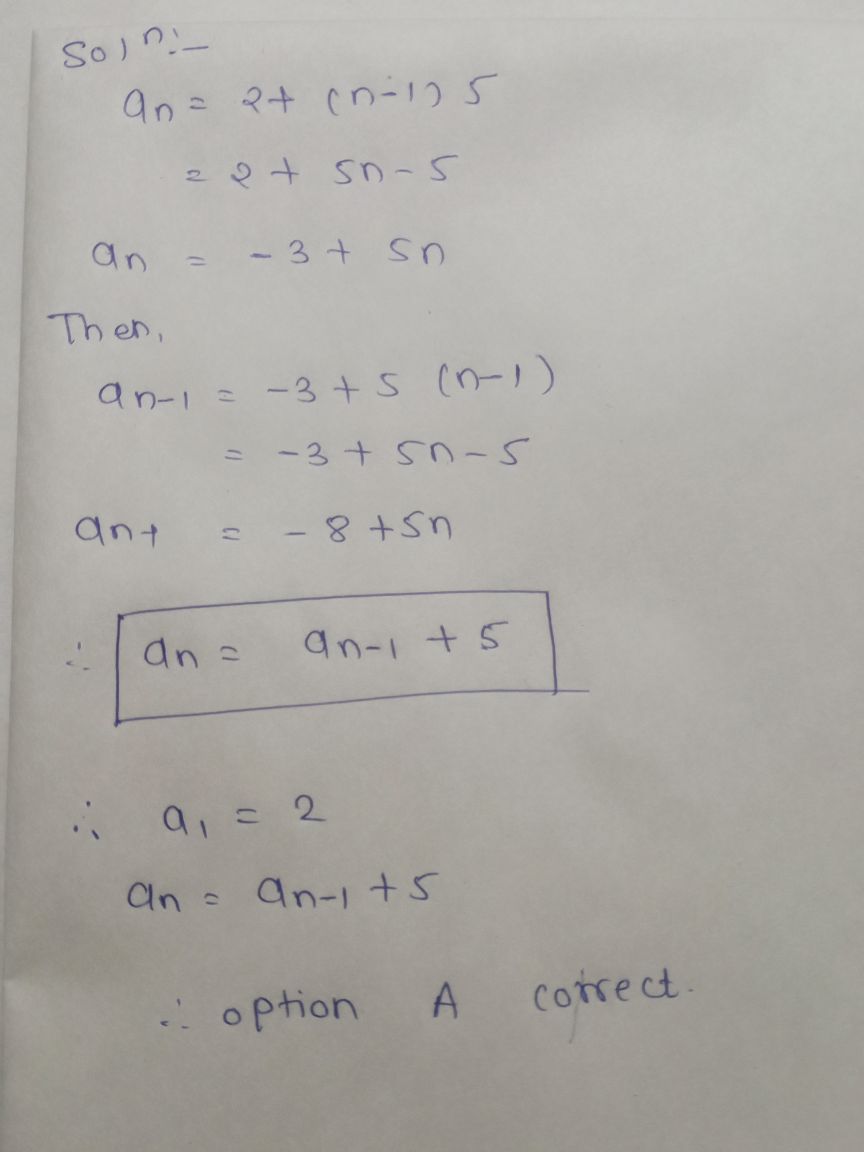 Solⁿ:-
an = 2+ (n-1) 5
= 2 + 5n - 5
an = -3 + 5n
Then,
an-1 = -3 + 5 (n-1)
= -3 + 5n - 5
an-1 = -8 + 5n
∴ an = an-1 + 5
∴ a1 = 2
an = an-1 + 5
∴ option A correct.